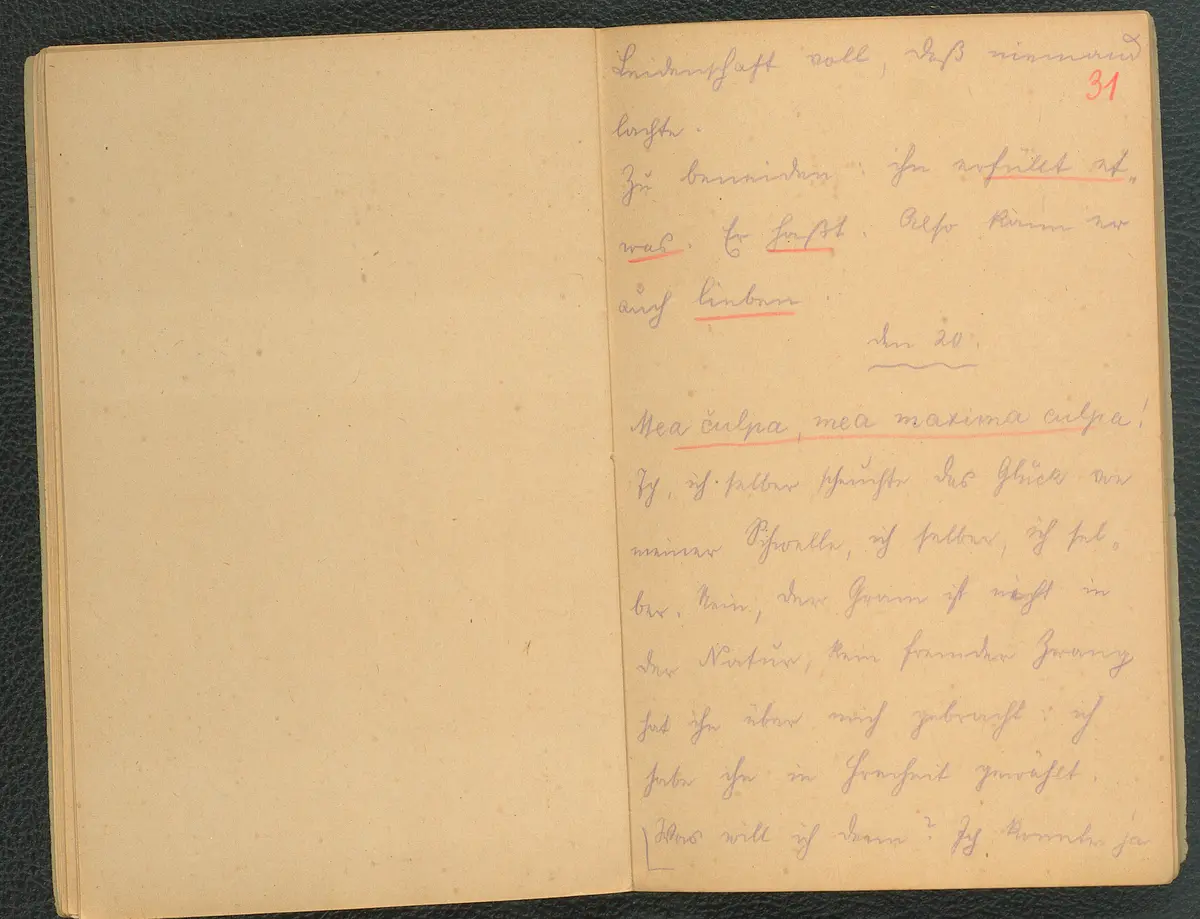 Leidenschaft voll, daß niemand
31
lachte.
Zu beneiden: ihn erfüllt et„
was. Er haßt. Also kann er
auch lieben.
den 20.
Mea culpa, mea maxima culpa!
Ich, ich selber scheuchte das Glück von
meiner Schwelle, ich selber, ich sel„
ber. Nein, der Gram ist nicht in
der Natur, kein fremder Zwang
hat ihn über mich gebracht: ich
habe ihn in Freiheit gewählt.
Was will ich denn? Ich konnte ja